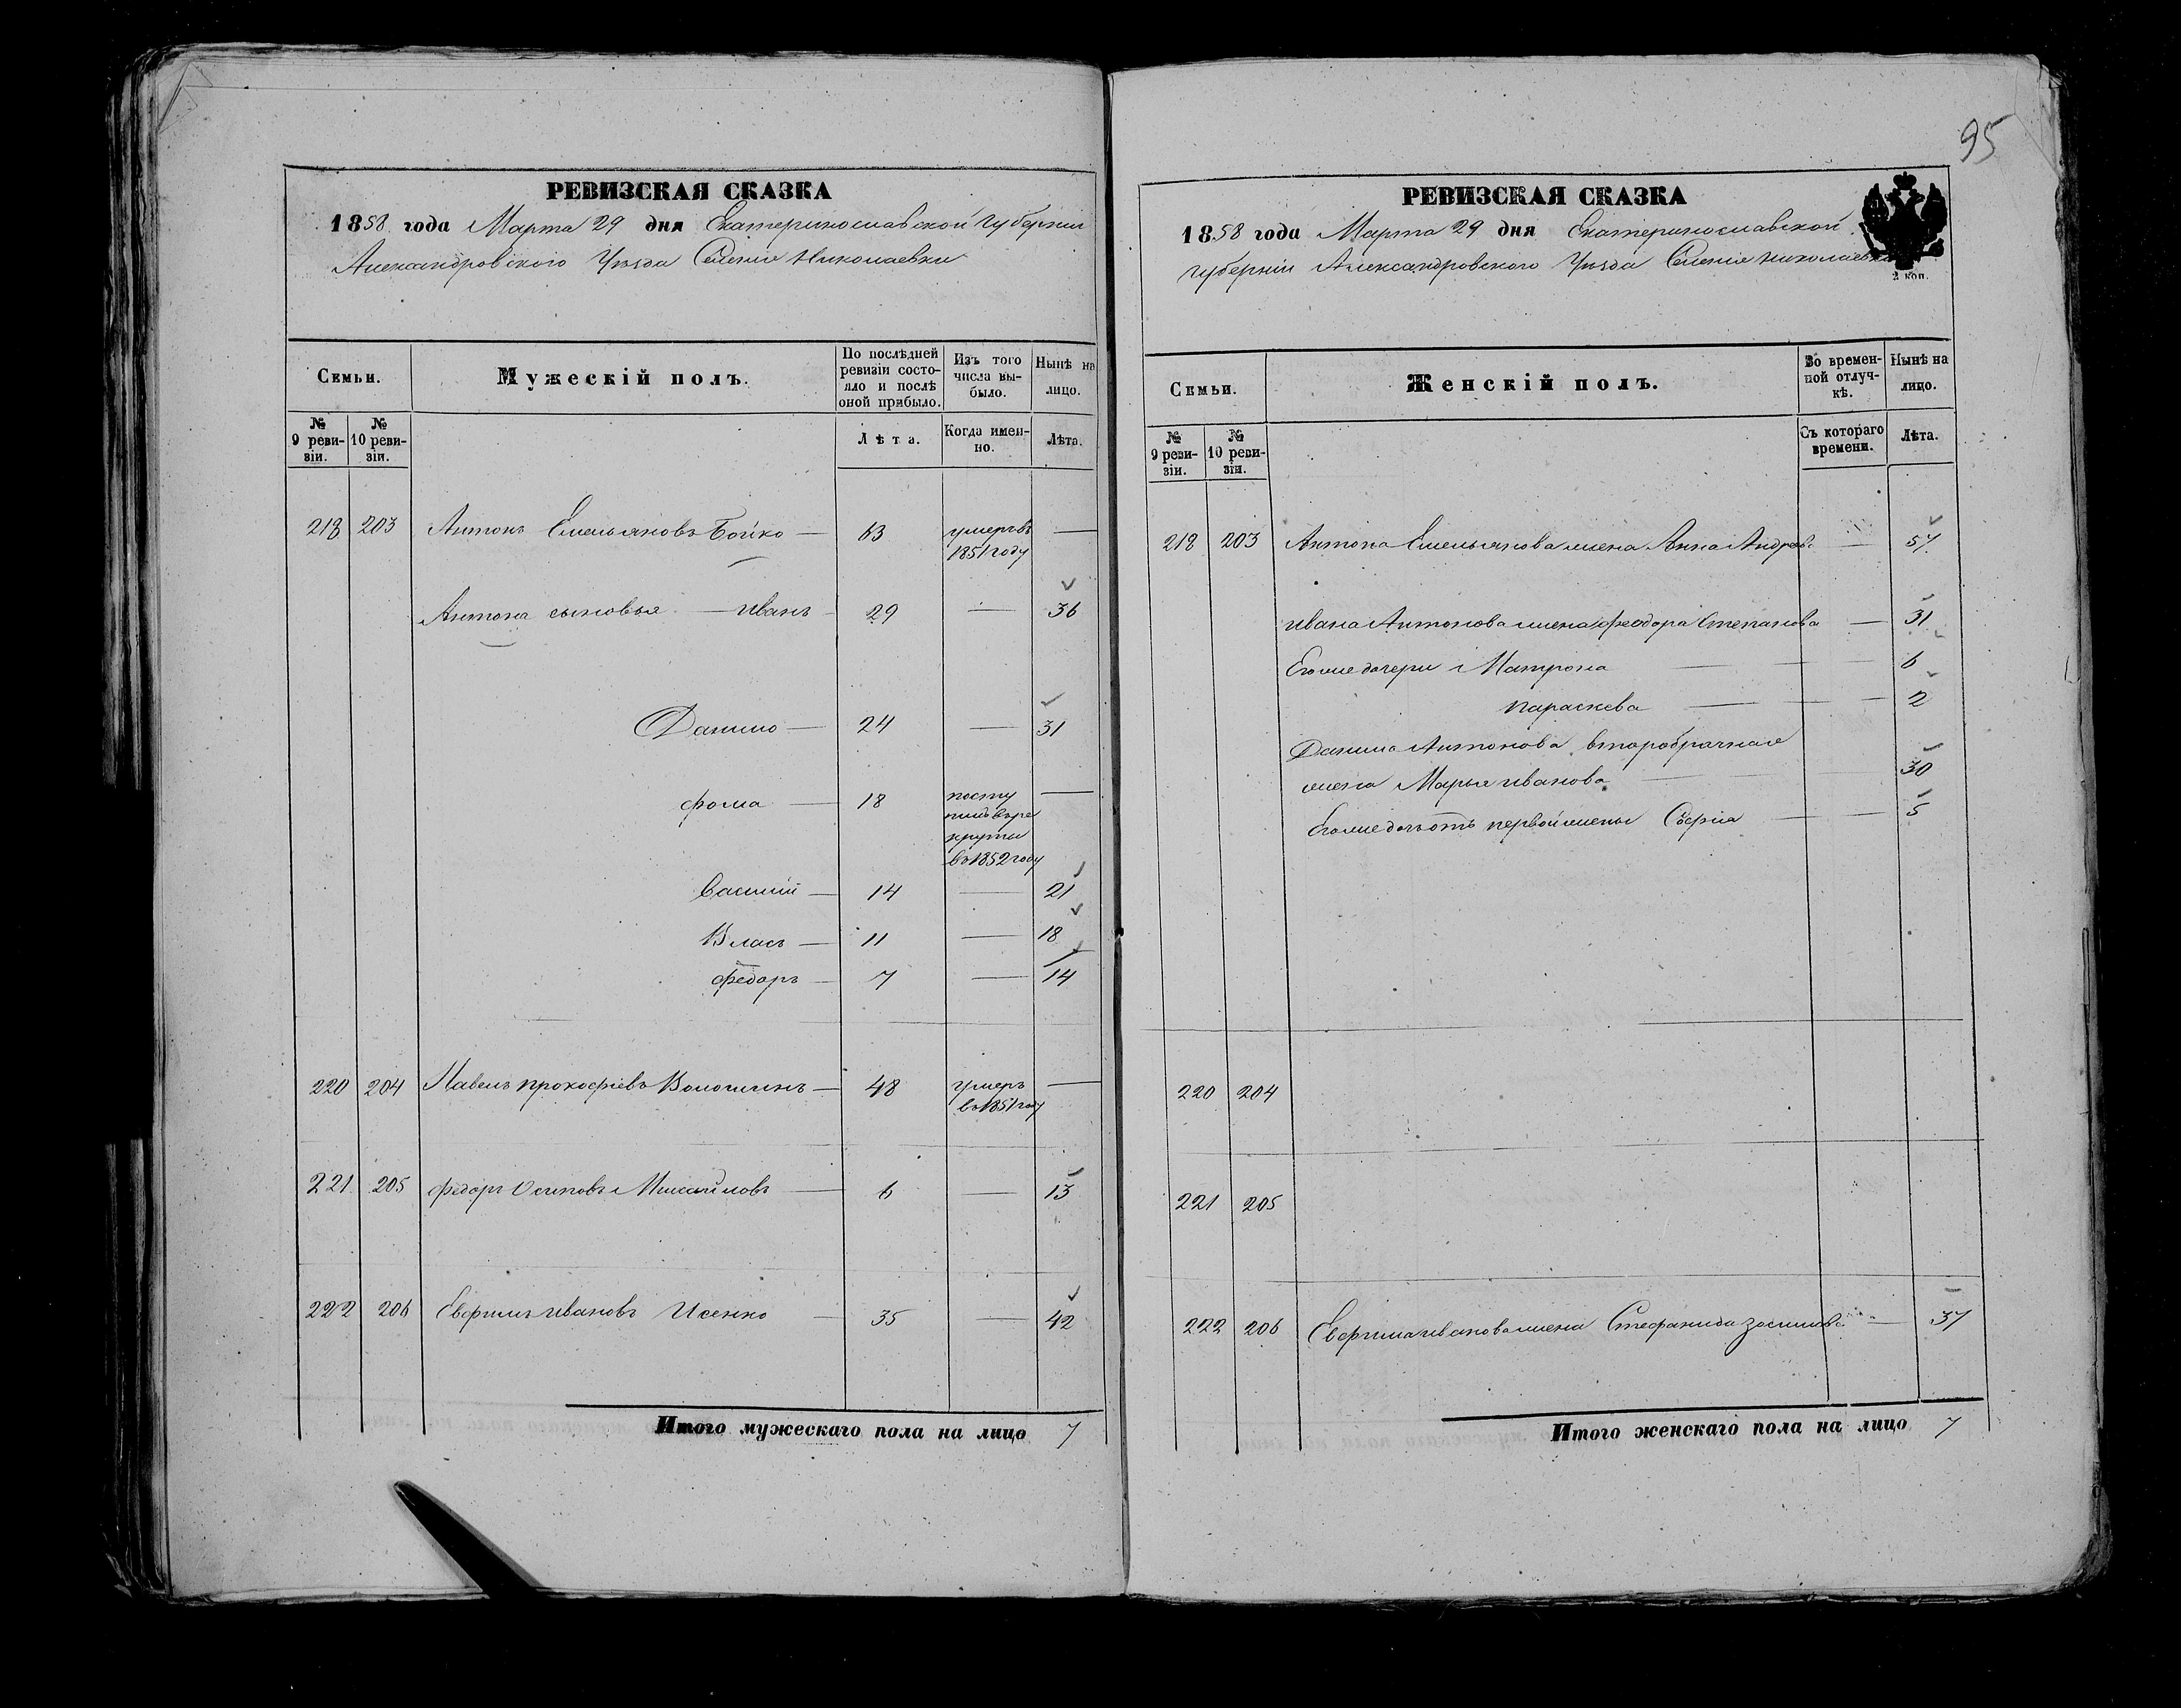 95
РЕВИЗСКАЯ СКАЗКА
1858 года Марта 29 дня Екатеринославской Губернии
Александровского Уѣзда Селенія Николаевки
Семьи.
Мужескій полъ.
По послѣдней ревизіи состояло и послѣ оной прибыло.
Изъ того числа выбыло.
Нынѣ на лицо.
№ 9 ревизіи.
№ 10 ревизіи.
Лѣта.
Когда именно.
Лѣта.
218 203 Антонъ Емельяновъ Бойко — 63 умеръ въ 1851 году —
Антона сыновья — Иванъ 29 — 36
Данило — 24 — 31
Фома — 18 поступилъ въ рекруты въ 1852 году —
Василій — 14 — 21
Власъ — 11 — 18
Федоръ — 7 — 14
220 204 Павелъ Прокофіевъ Волошинъ — 48 умеръ въ 1851 году —
221 205 Федоръ Осиповъ Михайловъ — 6 — 13
222 206 Евфимъ Ивановъ Исенко — 35 — 42
Итого мужескаго пола на лицо 7
РЕВИЗСКАЯ СКАЗКА
1858 года Марта 29 дня Екатеринославской
Губерніи Александровского Уѣзда Селенія Николаевки
2 коп.
Семьи.
Женскій полъ.
Во временной отлучкѣ.
Нынѣ на лицо.
№ 9 ревизіи.
№ 10 ревизіи.
Съ котораго времени.
Лѣта.
218 203 Антона Емельянова жена Анна Андреева — 57
Ивана Антонова жена Феодора Степанова — 31
Его же дочери Матрона — 6
Параскева — 2
Данила Антонова второбрачная
жена Марья Иванова — 30
Его же дочь отъ первой жены Софія — 5
220 204
221 205
222 206 Евфима Иванова жена Стефанида — 37
Итого женскаго пола на лицо 7